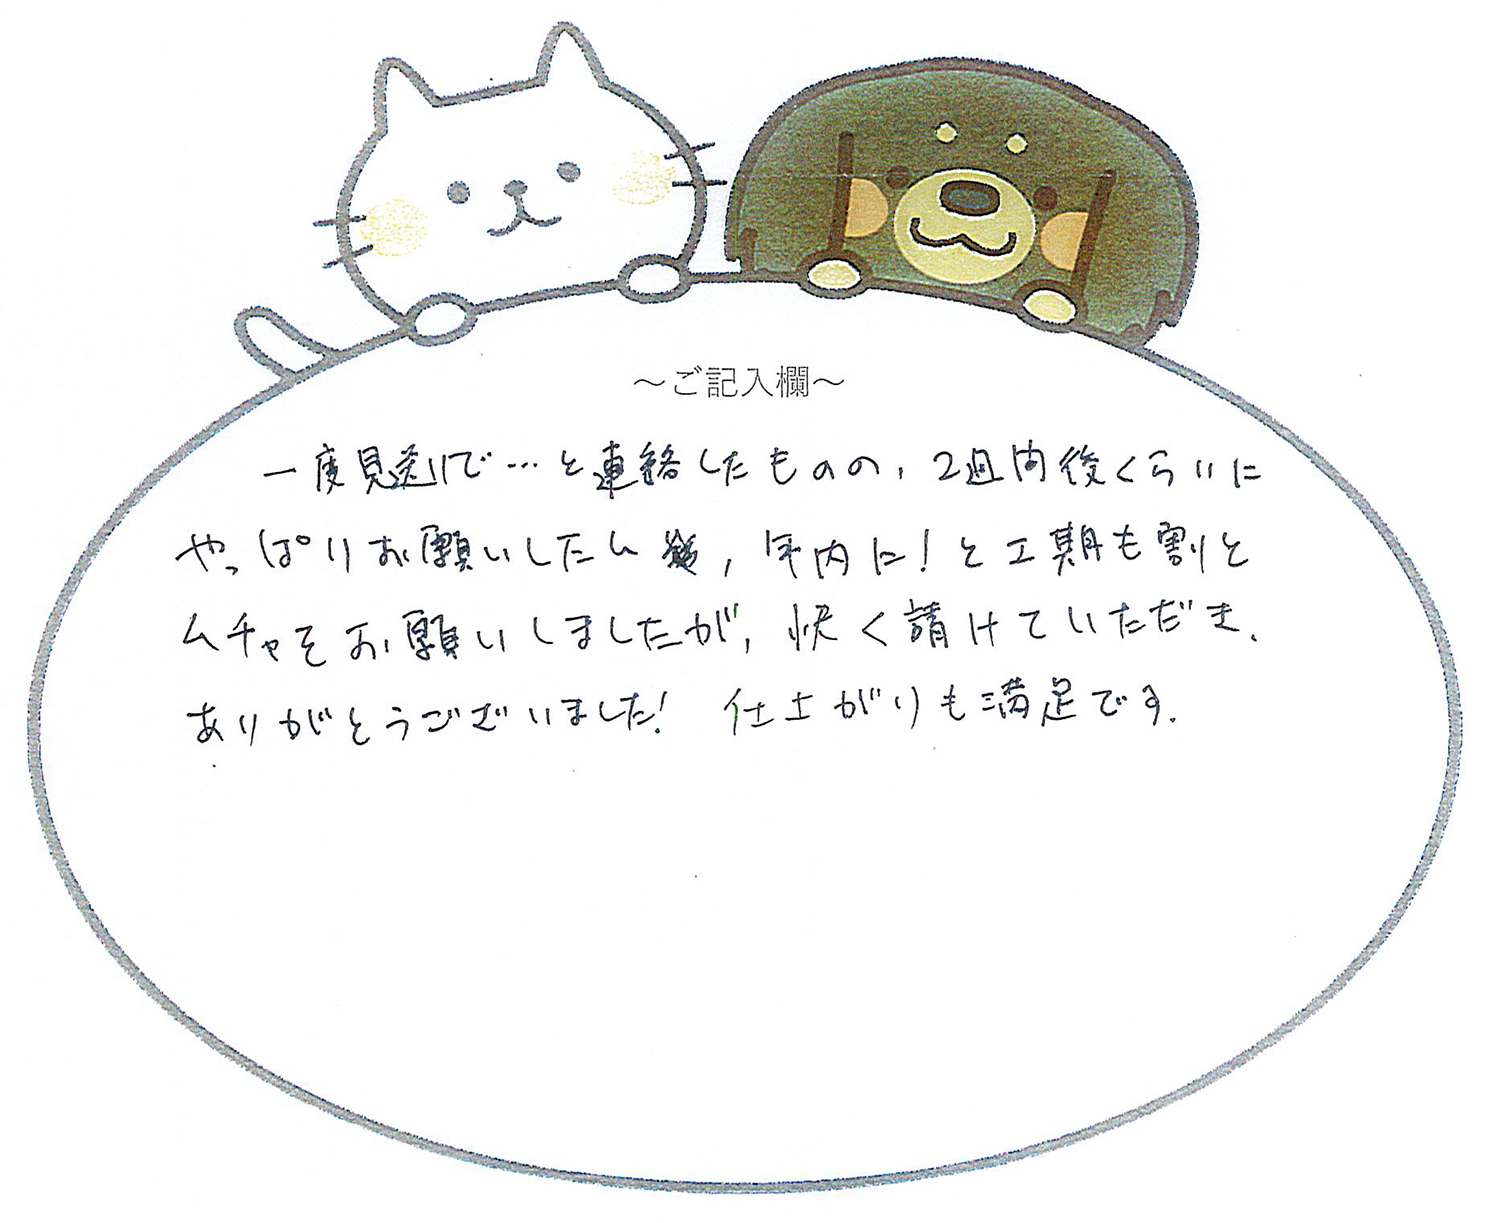 ～ご記入欄～
一度見送りで…と連絡したものの、2週間後くらいに
やっぱりお願いしたい、年内に！と工期も割と
ムチャをお願いしましたが、快く請けていただき、
ありがとうございました！ 仕上がりも満足です。